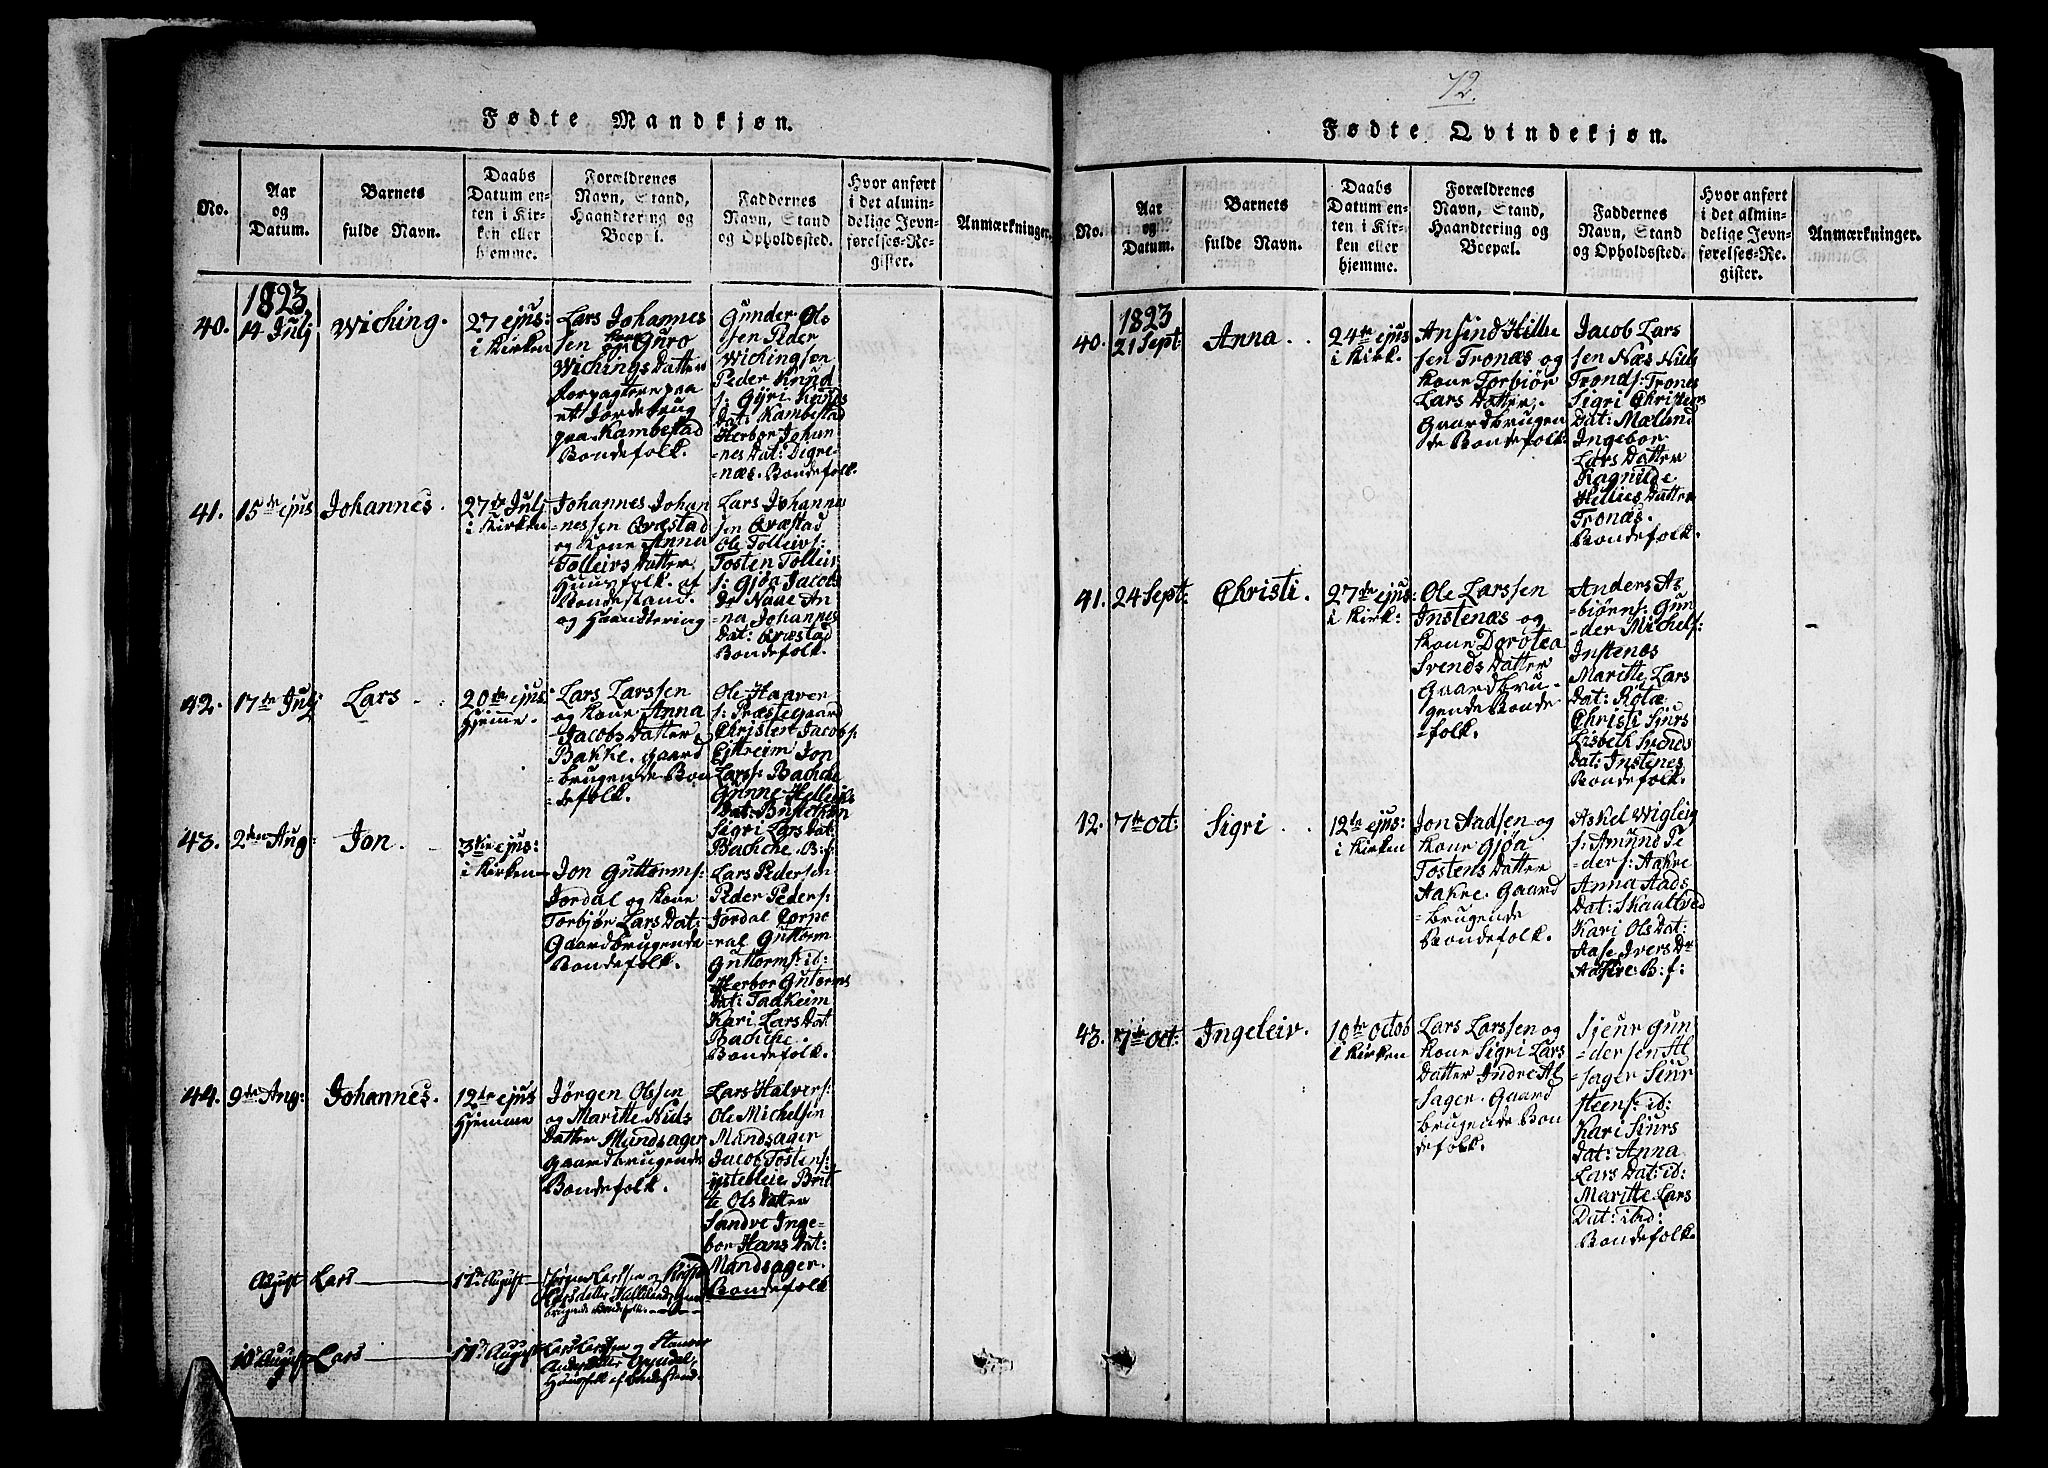 Fødte Mandkjøn.
No.
Aar
og
Datum.
Barnets
fulde Navn.
Daabs
Datum en-
ten i Kir-
ken eller
hjemme.
Forældrenes
Navn, Stand,
Haandtering og
Boepæl.
Faddernes
Navn, Stand
og Opholdssted.
Hvor anført
i det almin-
delige Jevn-
førelses-Re-
gister.
Anmærkninger.
1823
40.
14 Julj
Wiching.
27 ejus:
i Kirken
Lars Johannes
sen og Kone Guro
Wichings Datter
Forpagtere paa
et Jordebrug
paa Kambestad
Bondefolk.
Gunder Ols
sen Peder
Wichingsen
Peder Knud
s: Gyri Hans
Dat: Kambestad
Herbor Johan
-nes Dat: Digre-
næs. Bondefolk
41.
15de ejus
Johannes.
27de Julj
i Kirken
Johannes Johan
-nessen Qræstad
og Kone Anna
Tolleivs Datter
Huusfolk af
Bondestand.
og Haandtering
Lars Johannes
sen Qræstad
Ole Tolleivs:
Tosten Tolleiv
s: Gjøa Jacobs
Dr Naae An
na Johannes
Dat: Qræstad
Bondefolk.
42.
17de Julj
Lars
20de ejus
Hjemme.
Lars Larssen
og Kone Anna
Jacobs Datter
Bakke. Gaard
-brugende Bon
-defolk.
Ole Haaver
s: Præstegaard
Christen Jacobs:
Eittreim Jon
Larss: Bachche
Gunne Helleiks
Dat: Bustethun
Sigri Lars Dat:
Bachche. B: f:
43.
2den Aug:
Jon.
3die ejus:
i Kirken
Jon Guttorms:
Jordal og Kone
Torbjør Lars Dat:
Gaardbrugende
Bondefolk.
Lars Pedersen
Peder Peders:
Jordal Corpo
-ral Guttorm
Guttorms: id:
Herbor Guttorms
Dat: Taakeim
Kari Lars Dat
Bachche.
Bondefolk.
44.
9de Aug:
Johannes.
12te ejus
Hjemme
Jørgen Olssen
og Maritte Niels
Datter Mandsager
Gaardbrugende
Bondefolk.
Lars Halvers:
Ole Michelsen
Mandsager
Jacob Tostens:
ystebleie Brit
te Ols Datter
Sandve Inge-
bor Hans Dat:
Mandsager.
Bondefolk
August
Lars
17de August
Jørgen Larssen og
brugende Bondefolk.
10de August
Lars
17de August
Lars Larssen og
Huusfolk af Bondestand.
72.
Fødte Qvindekjøn.
No.
Aar
og
Datum.
Barnets
fulde Navn.
Daabs
Datum en-
ten i Kir-
ken eller
hjemme.
Forældrenes
Navn, Stand,
Haandtering og
Boepæl.
Faddernes
Navn, Stand
og Opholdssted.
Hvor anført
i det almin-
delige Jevn-
førelses-Re-
gister.
Anmærkninger.
1823
40.
21 Sept
Anna.
24de ejus:
i Kirk.
Ansind Hillu
sen Tronæs og
Kone Torbiør
Lars Datter.
Gaardbrugen
de Bondefolk
Jacob Lars
sen Næs Niels
Tronds: Trones
Sigri Christens
Dat: Mælund
Ingebor
Lars Datter
Ragnilde
Hellies Datter
Tronæs.
Bondefolk.
41.
24 Sept:
Christi.
27de ejus:
i Kirk:
Ole Larssen
Instenæs og
Kone Dorotea
Svends Datter
Gaardbru-
gende Bonde
-folk.
Anders As
-biørns: Gun
-der Michels:
Instenæs
Maritte Lars
Dat: Rotæ
Christi Siurs
Lisbeth Svends
Dat: Instenes
Bondefolk.
12.
7de Oct:
Sigri
12te ejus:
i Kirken
Jon Aadsen og
Kone Gjøa
Tostens Datter
Aakre. Gaard
-brugende
Bondefolk.
Askel Wigleig
s: Amund Pe
-ders: Aakre
Anna Aads
Dat: Skaltved
Kari Ols Dat:
Aase Ivers Dr
Aakre B: f:
43.
7de Oct:
Ingeleiv.
10de Octob
i Kirken
Lars Larssen og
Kone Sigri Lars
Datter Indre Al
-sager. Gaard
brugende Bon
defolk.
Sjeur Gun
-dersen Al
-sager Siur
Steens: id:
Kari Siurs
Dat: Anna
Lars Dat: id:
Maritte Lars
Dat: ibid:
Bondefolk.